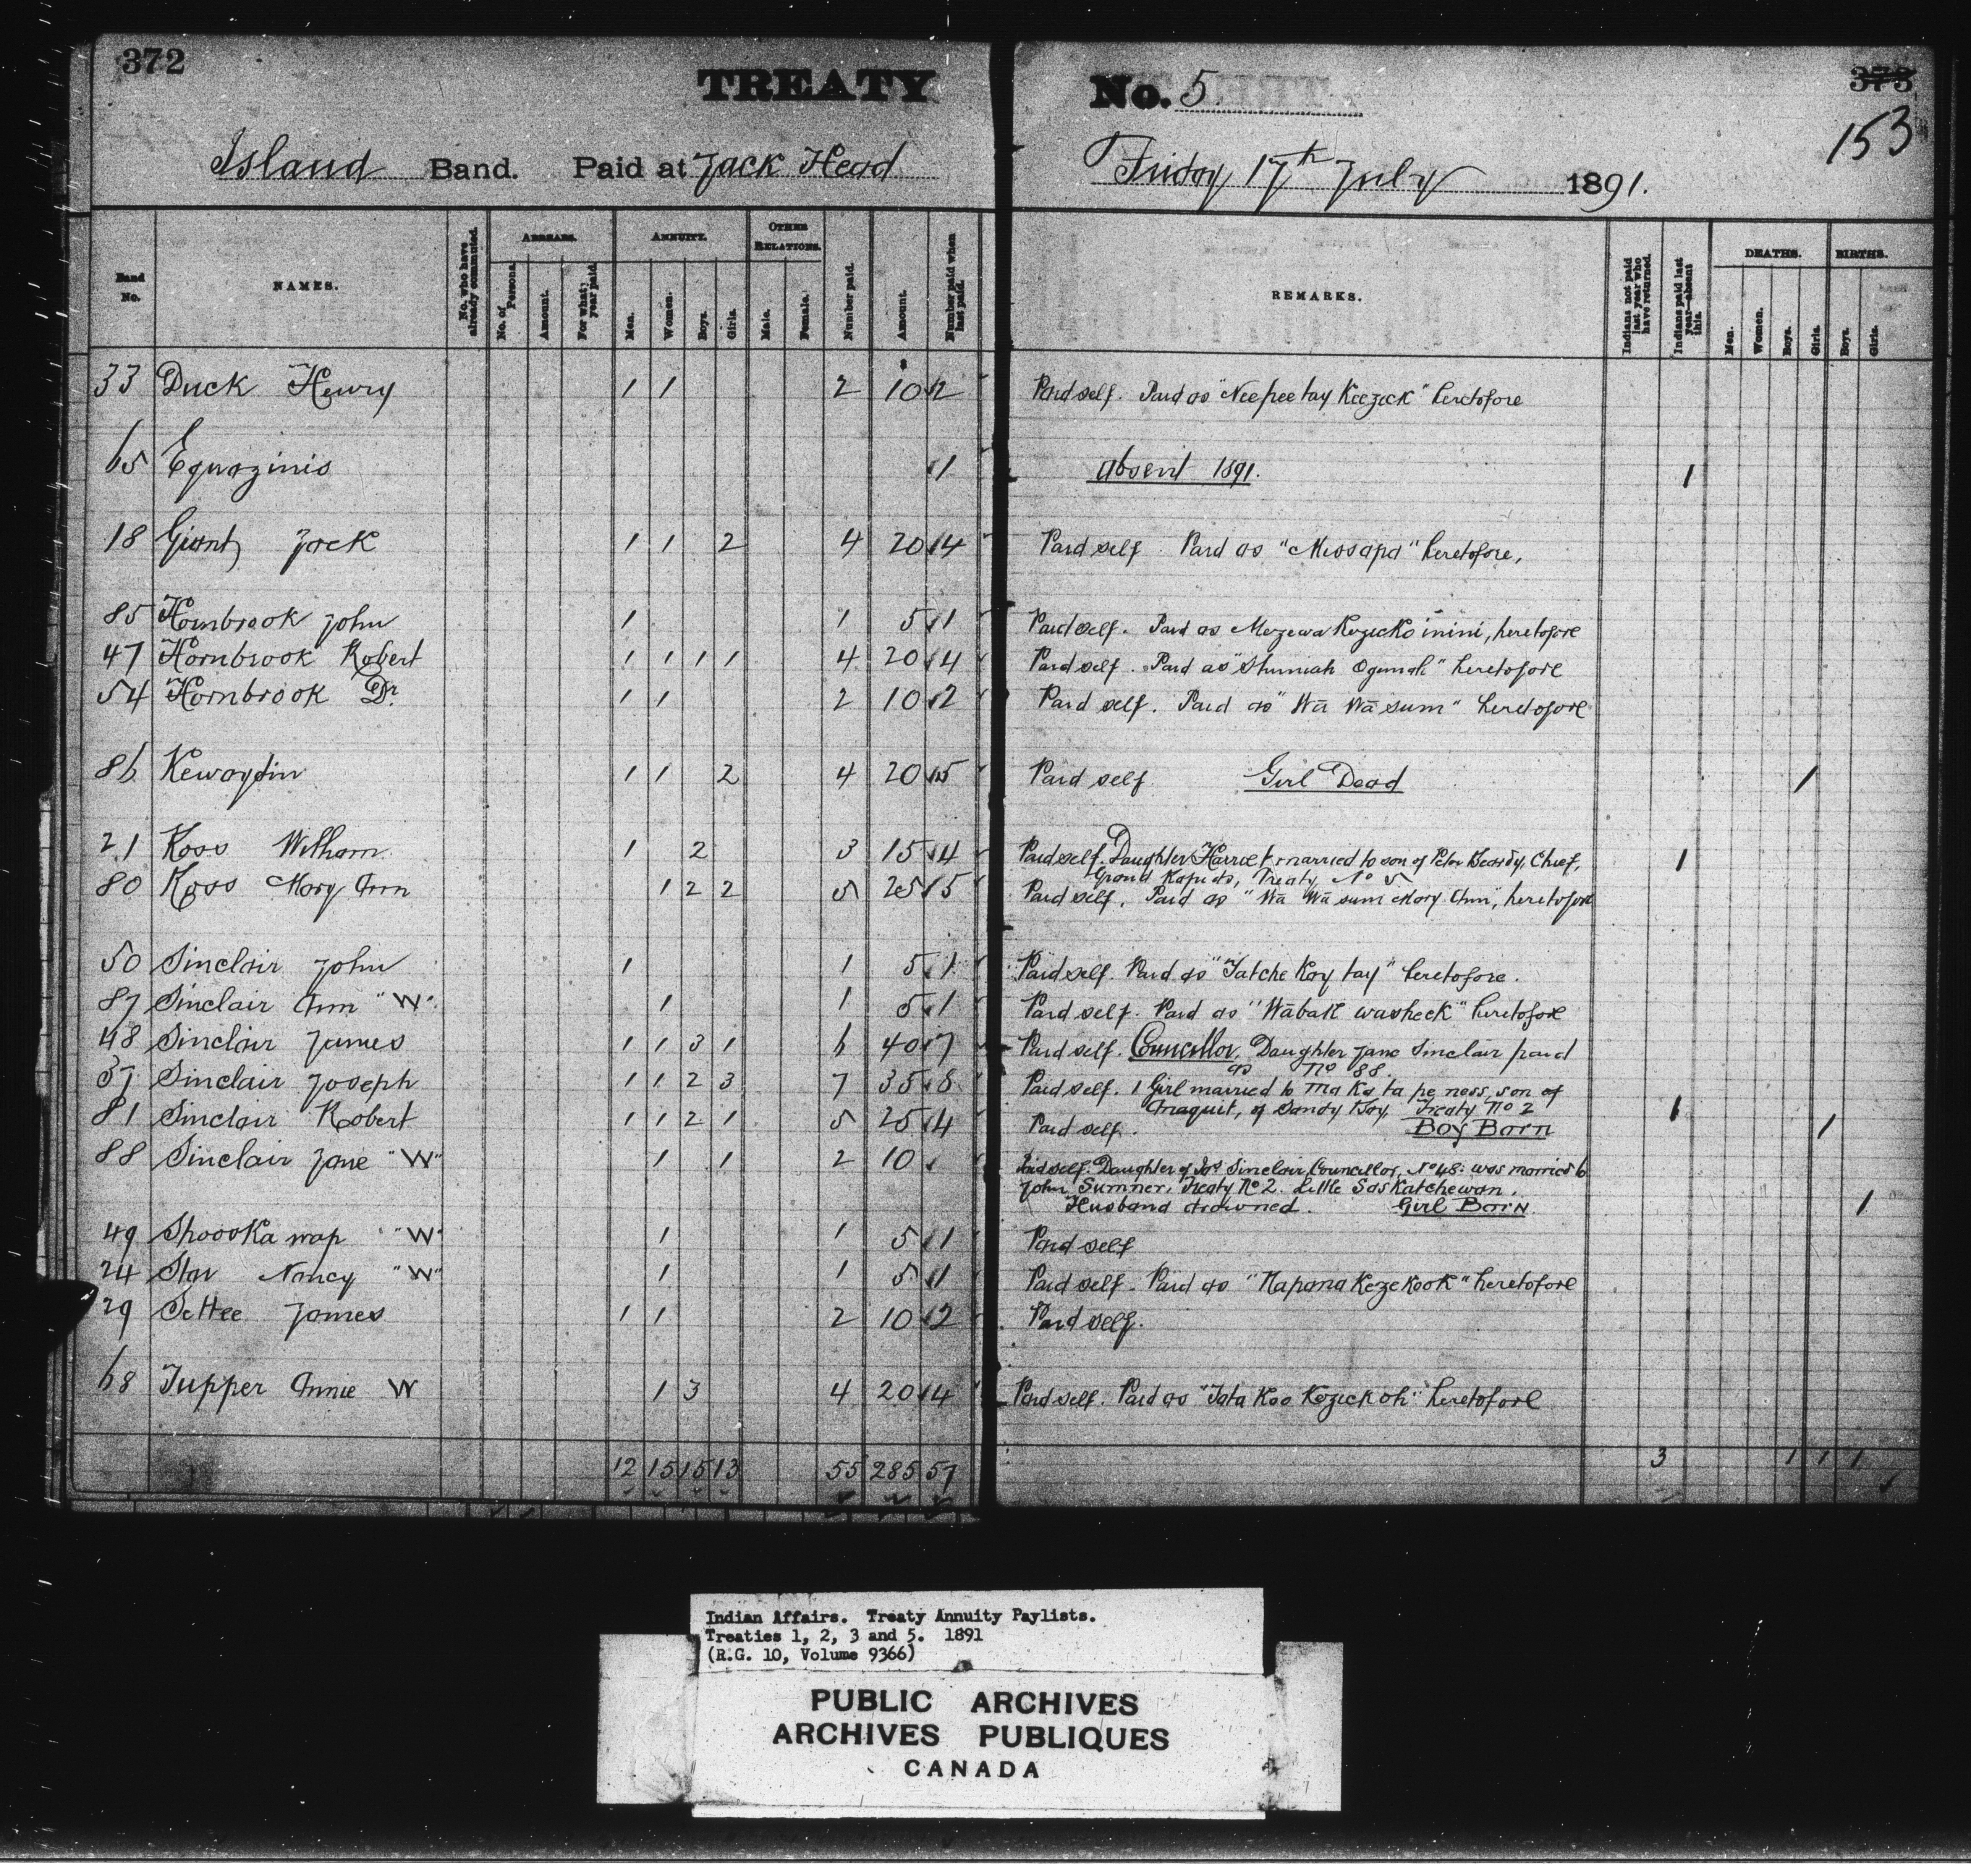 372
TREATY
Island Band. Paid at Jack Head
No. 5
373
153
Friday 17th July 1891.
Band No. NAMES. No. who have already commuted. ARREARS. No. of Persons. Amount. For what year paid. ANNUITY. Men. Women. Boys. Girls. OTHER RELATIONS. Male. Female. Number paid. Amount. Number paid when last paid. REMARKS. Indians not paid last year who have returned. Indians paid last year—absent this. DEATHS. Men. Women. Boys. Girls. BIRTHS. Boys. Girls.
33 Duck Henry 1 1 2 10 2 Paid self. Paid as "Neepeetay Keezick" heretofore
65 Equazinis 1 absent 1891. 1
18 Giant, Jack 1 1 2 4 20 4 Paid self. Paid as "Missapa" heretofore,
85 Hornbrook John 1 1 5 1 Paid self. Paid as inini, heretofore
47 Hornbrook Robert 1 1 1 1 4 20 4 Paid self. Paid as "Shuniah Ogimah" heretofore
54 Hornbrook Dr. 1 1 2 10 2 Paid self. Paid as "Wā Wā sum" heretofore
86 Kewaydin 1 1 2 4 20 5 Paid self Girl Dead 1
21 Koss William 1 2 3 15 4 Paid self. Daughter Harriet married to son of Peter Beardy, Chief, 1
Grand Rapids, Treaty No 5
80 Koss Mary Ann 1 2 2 5 25 5 Paid self. Paid as "Wā Wā sum Mary Ann", heretofore
50 Sinclair John 1 1 5 1 Paid self. Paid as "Tatche Koy tay" heretofore.
87 Sinclair Ann "W" 1 1 5 1 Paid self. Paid as "Wābak washeck" heretofore
48 Sinclair James 1 1 3 1 6 40 7 Paid self. Councillor. Daughter Jane Sinclair paid
as No 88.
37 Sinclair Joseph 1 1 2 3 7 35 8 Paid self. 1 Girl married to Ma Ka ta pe ness, son of
of Sandy Bay, Treaty No 2 1
81 Sinclair Robert 1 1 2 1 5 25 4 Paid self. Boy Born 1
88 Sinclair Jane "W" 1 1 2 10 Paid self. Daughter of Jas Sinclair, Councillor, No 48. was married to
John Sumner, Treaty No 2. Little Saskatchewan.
Husband drowned. Girl Born 1
49 Shooska wap "W" 1 1 5 1 Paid self
24 Star Nancy "W" 1 1 5 1 Paid self. Paid as "Napana Kezekook" heretofore
29 Settee James 1 1 2 10 2 Paid self.
68 Tupper Annie W 1 3 4 20 4 Paid self. Paid as "Tata Koo Kezickoh" heretofore
12 15 15 13 55 285 57 3 1 1 1
Indian Affairs. Treaty Annuity Paylists.
Treaties 1, 2, 3 and 5. 1891
(R.G. 10, Volume 9366)
PUBLIC ARCHIVES
ARCHIVES PUBLIQUES
CANADA